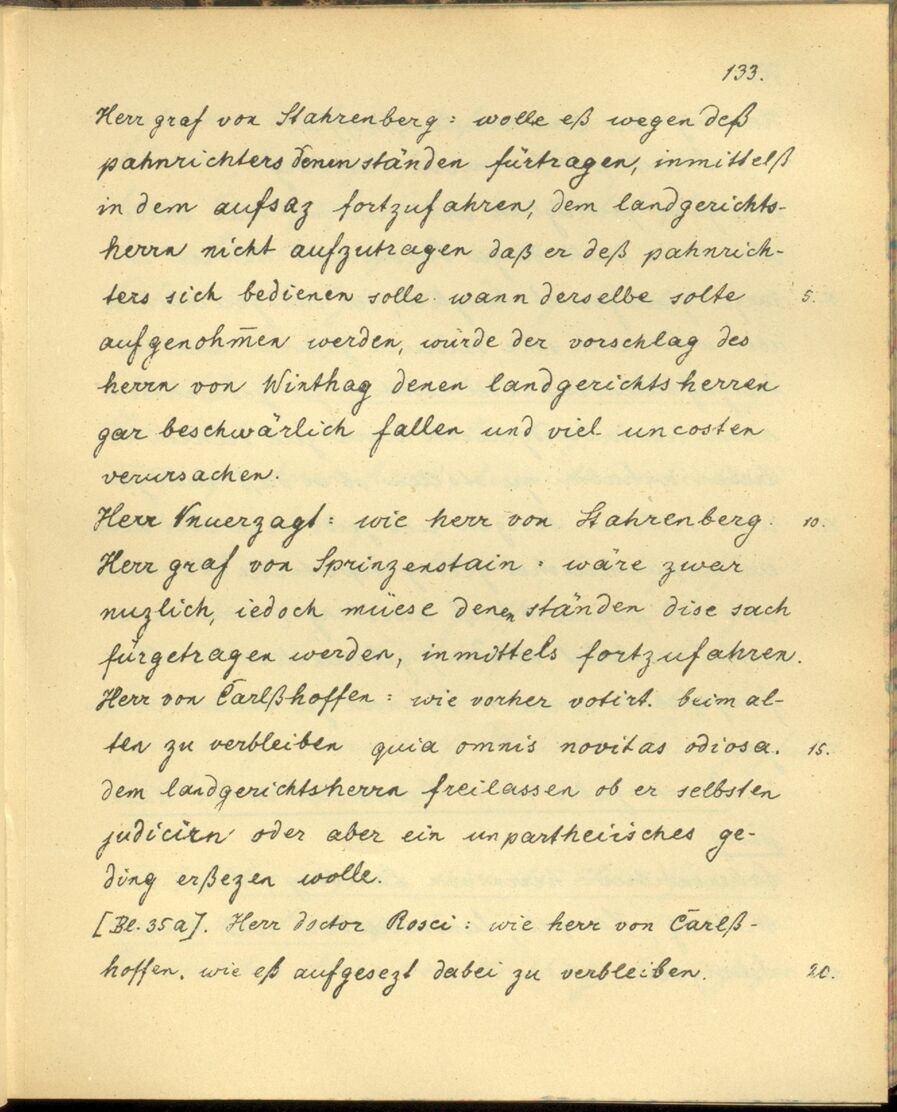 133.
Herr graf von Stahrenberg: wolle eß wegen deß
pahnrichters denen ständen fürtragen, inmittelß
in dem aufsaz fortzufahren, dem landgerichts-
herrn nicht aufzutragen daß er deß pahnrich-
ters sich bedienen solle. wann derselbe solte 5.
aufgenohm̄en werden, würde der vorschlag des
herrn von Winthag denen landgerichtsherren
gar beschwärlich fallen und viel uncosten
verursachen.
Herr Vnuerzagt: wie herr von Stahrenberg. 10.
Herr graf von Sprinzenstain: wäre zwar
nuzlich, iedoch müese denen ständen dise sach
fürgetragen werden, inmittels fortzufahren.
Herr von Carlßhoffen: wie vorher votirt. beim al-
ten zu verbleiben quia omnis novitas odiosa. 15.
dem landgerichtsherrn freilassen ob er selbsten
judicirn oder aber ein unpartheiisches ge-
ding erßezen wolle.
[Bl. 35a]. Herr doctor Rosci: wie herr von Carlß-
hoffen. wie eß aufgesezt dabei zu verbleiben. 20.